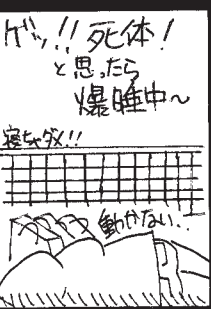 ゲッ!! 死体!
と思ったら
爆睡中〜
寝ちゃダメ!!
動かない..